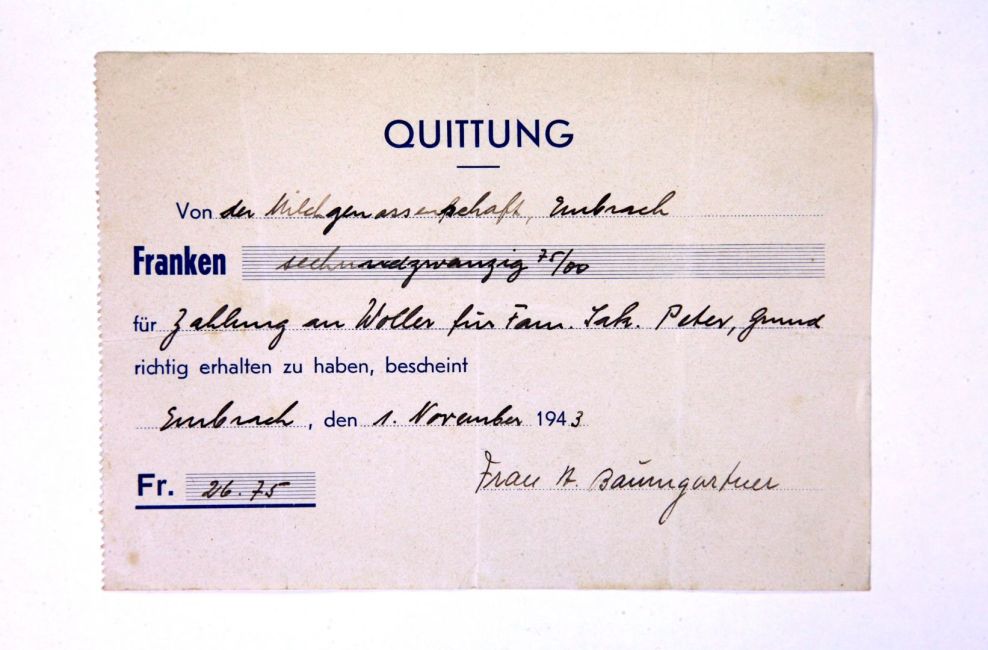 QUITTUNG
Von der Milchgenossenschaft, Embrach
Franken sechsundzwanzig 75/00
für Zahlung an Woller für Fam. Jak. Peter, Grund
richtig erhalten zu haben, bescheint
Embrach, den 1. November 1943
Fr. 26.75 Frau A. Baumgartner